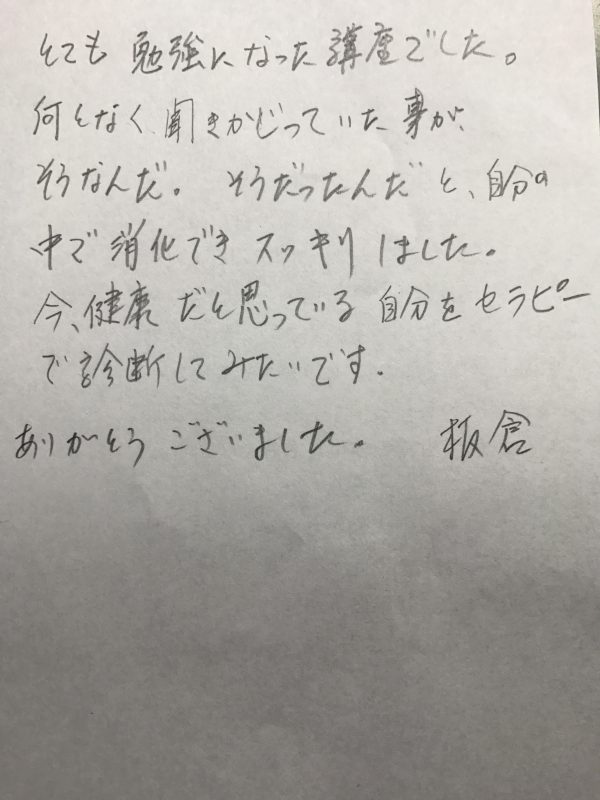 とても勉強になった講座でした。
何となく、聞きかじっていた事が、
そうなんだ。そうだったんだと、自分の
中で消化できスッキリしました。
今、健康だと思っている自分をセラピー
で診断してみたいです。
ありがとうございました。 板倉